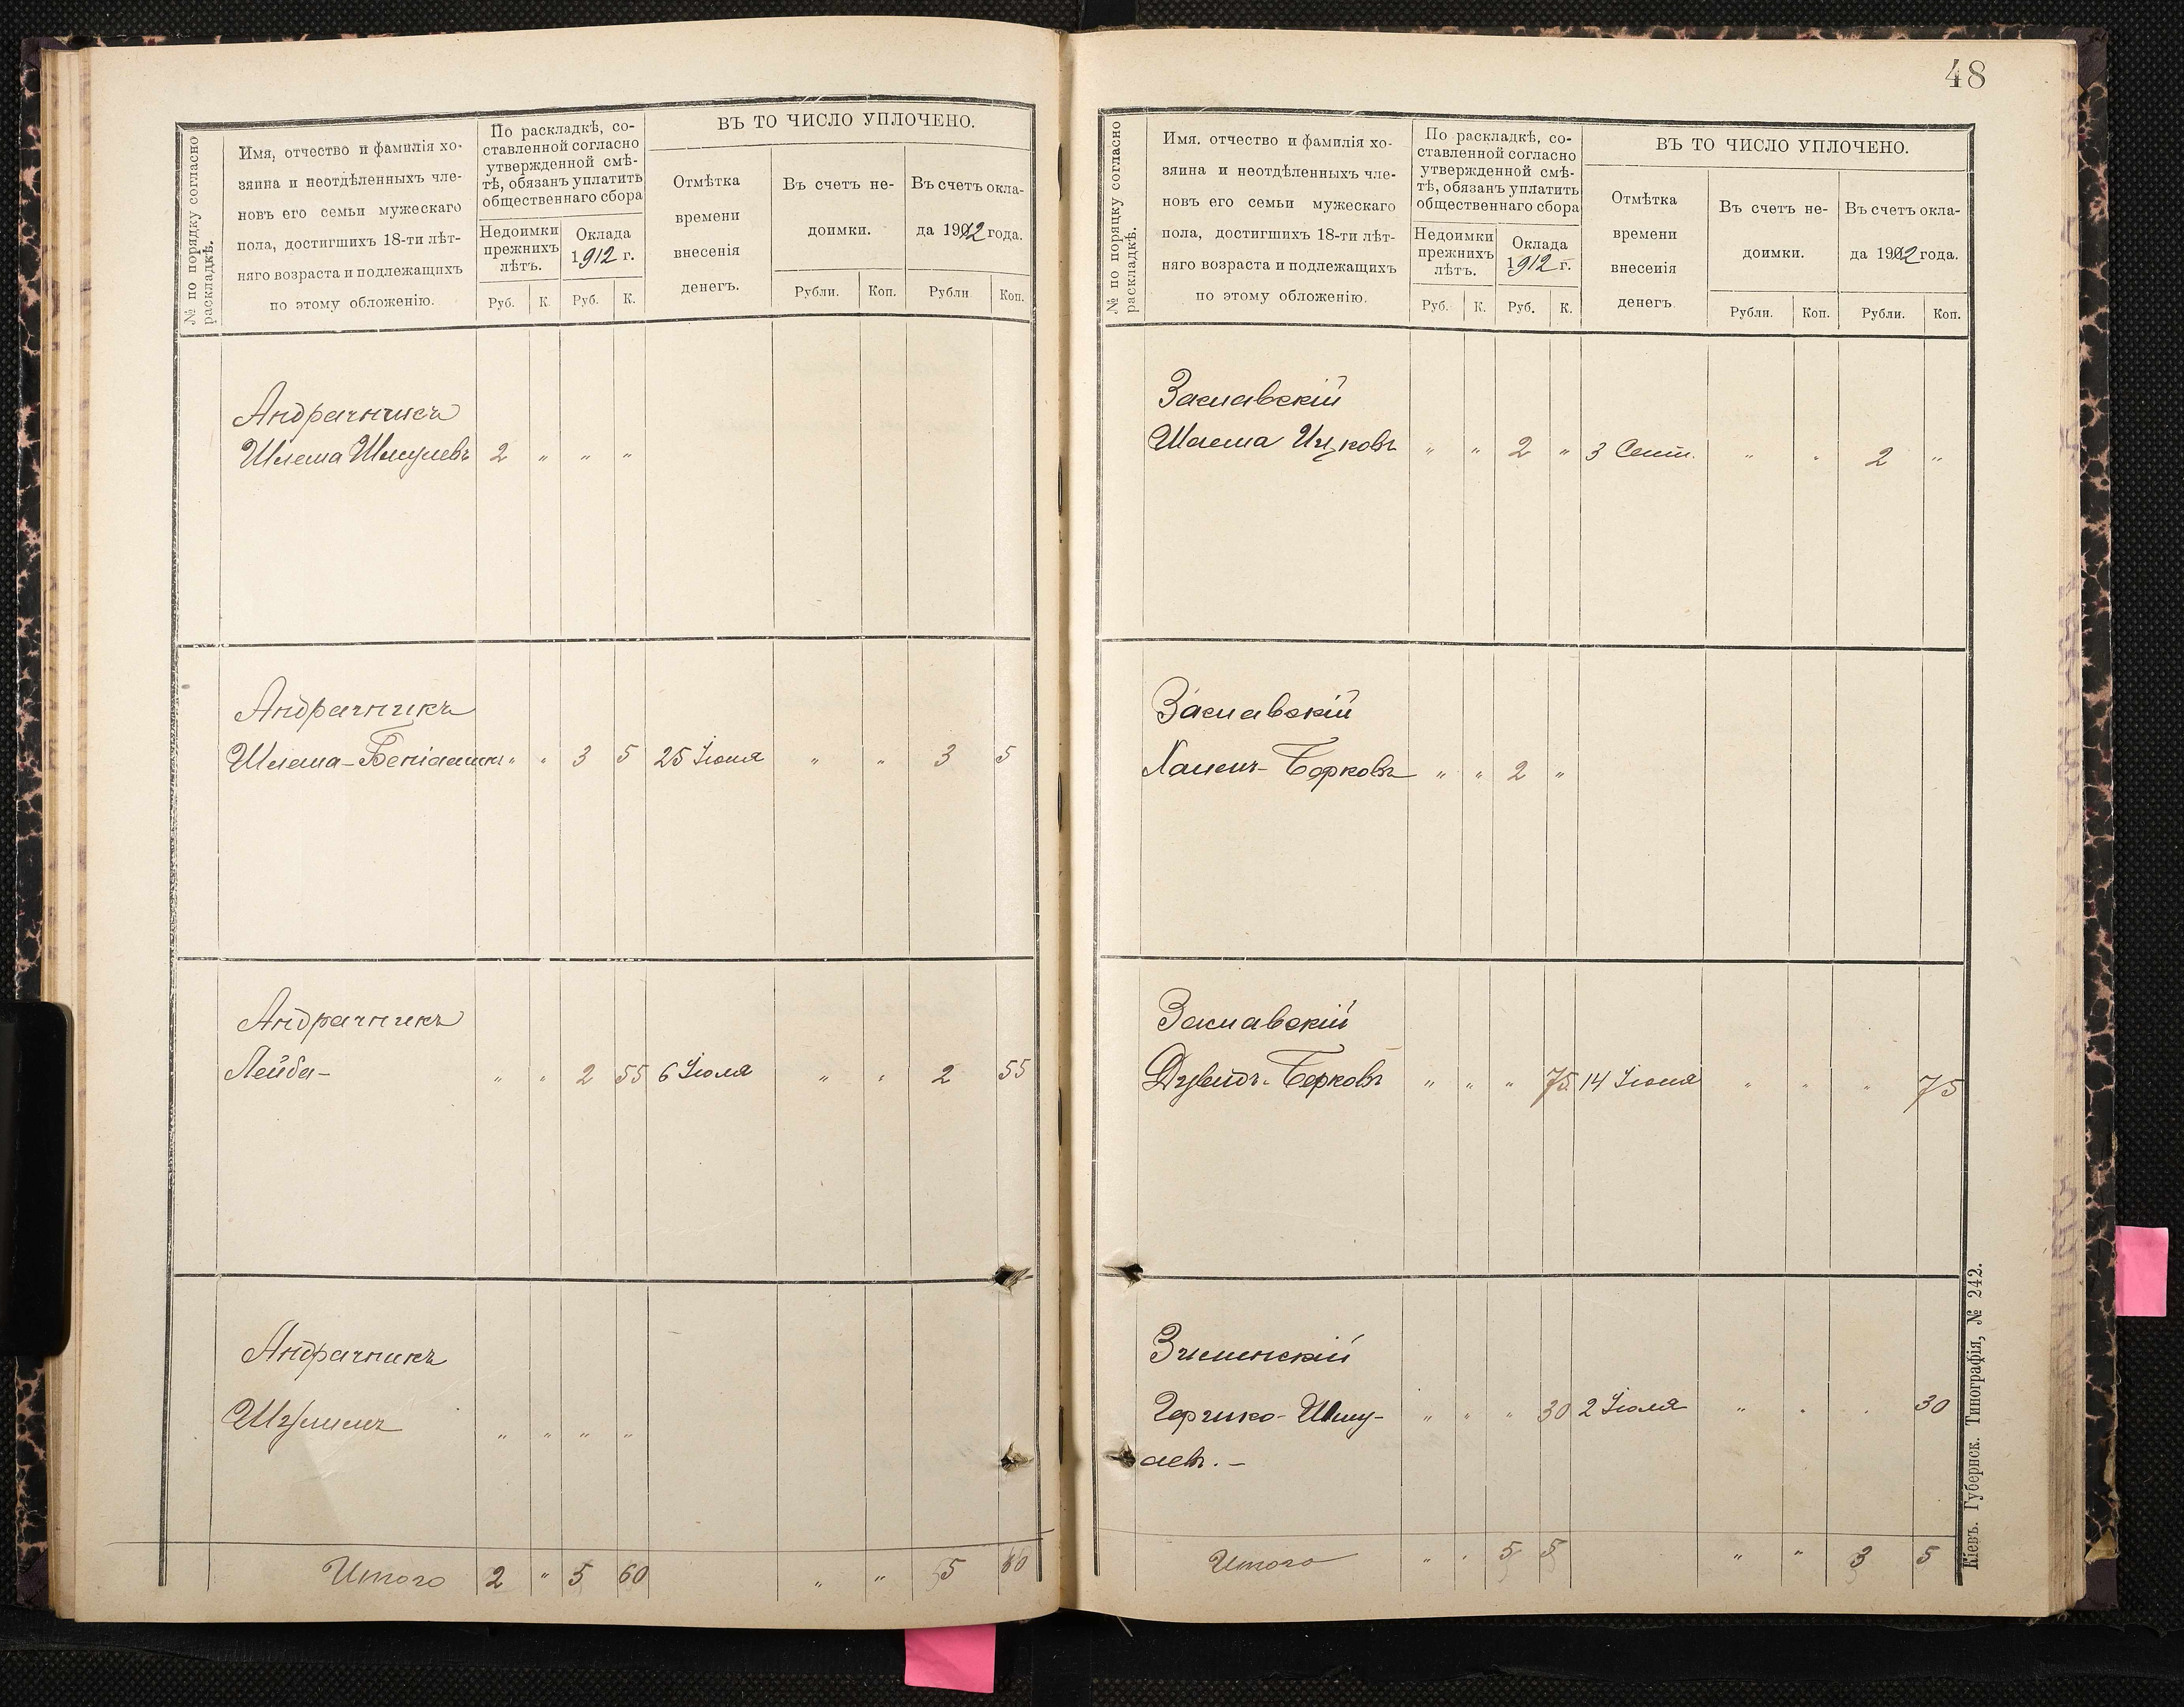 № по порядку согласно
раскладкѣ.
Имя, отчество и фамилія хо-
зяина и неотдѣленныхъ чле-
новъ его семьи мужескаго
пола, достигшихъ 18-ти лѣт-
няго возраста и подлежащихъ
по этому обложенію.
По раскладкѣ, со-
ставленной согласно
утвержденной смѣ-
тѣ, обязанъ уплатить
общественнаго сбора
Недоимки
прежнихъ
лѣтъ.
Оклада
1912 г.
Руб. К. Руб. К.
ВЪ ТО ЧИСЛО УПЛОЧЕНО.
Отмѣтка
времени
внесенія
денегъ.
Въ счетъ не-
доимки.
Въ счетъ окла-
да 1912 года.
Рубли. Коп. Рубли Коп.
Андрачникъ
Шлема Шмулевъ 2 " " "
Андрачникъ
Шлема-Беніаминъ " " 3 5 25 Іюня " " 3 5
Андрачникъ
Лейба- " " 2 55 6 Іюля " " 2 55
Андрачникъ
" " " "
Итого 2 " 5 60 " " 5 60
48
№ по порядку согласно
раскладкѣ.
Имя. отчество и фамилія хо-
зяина и неотдѣленныхъ чле-
новъ его семьи мужескаго
пола, достигшихъ 18-ти лѣт-
няго возраста и подлежащихъ
по этому обложенію.
По раскладкѣ, со-
ставленной согласно
утвержденной смѣ-
тѣ, обязанъ уплатить
общественнаго сбора
Недоимки
прежнихъ
лѣтъ.
Оклада
1912 г.
Руб. К. Руб. К.
ВЪ ТО ЧИСЛО УПЛОЧЕНО.
Отмѣтка
времени
внесенія
денегъ.
Въ счетъ не-
доимки.
Въ счетъ окла-
да 1912 года.
Рубли. Коп. Рубли. Коп.
Заславскій
Шлема Ицковъ " " 2 " 3 Сент. " " 2 "
Заславскій
Хаимъ-Берковъ " " 2 "
Заславскій
Дувидъ-Берковъ " " " 75 14 Іюня " " " 75
Зиминскій
Гершко-Шму-
левъ.- " " " 30 2 Іюля " " " 30
Итого " " 5 5 " " 3 5
Кіевъ. Губернск. Типографія, № 242.